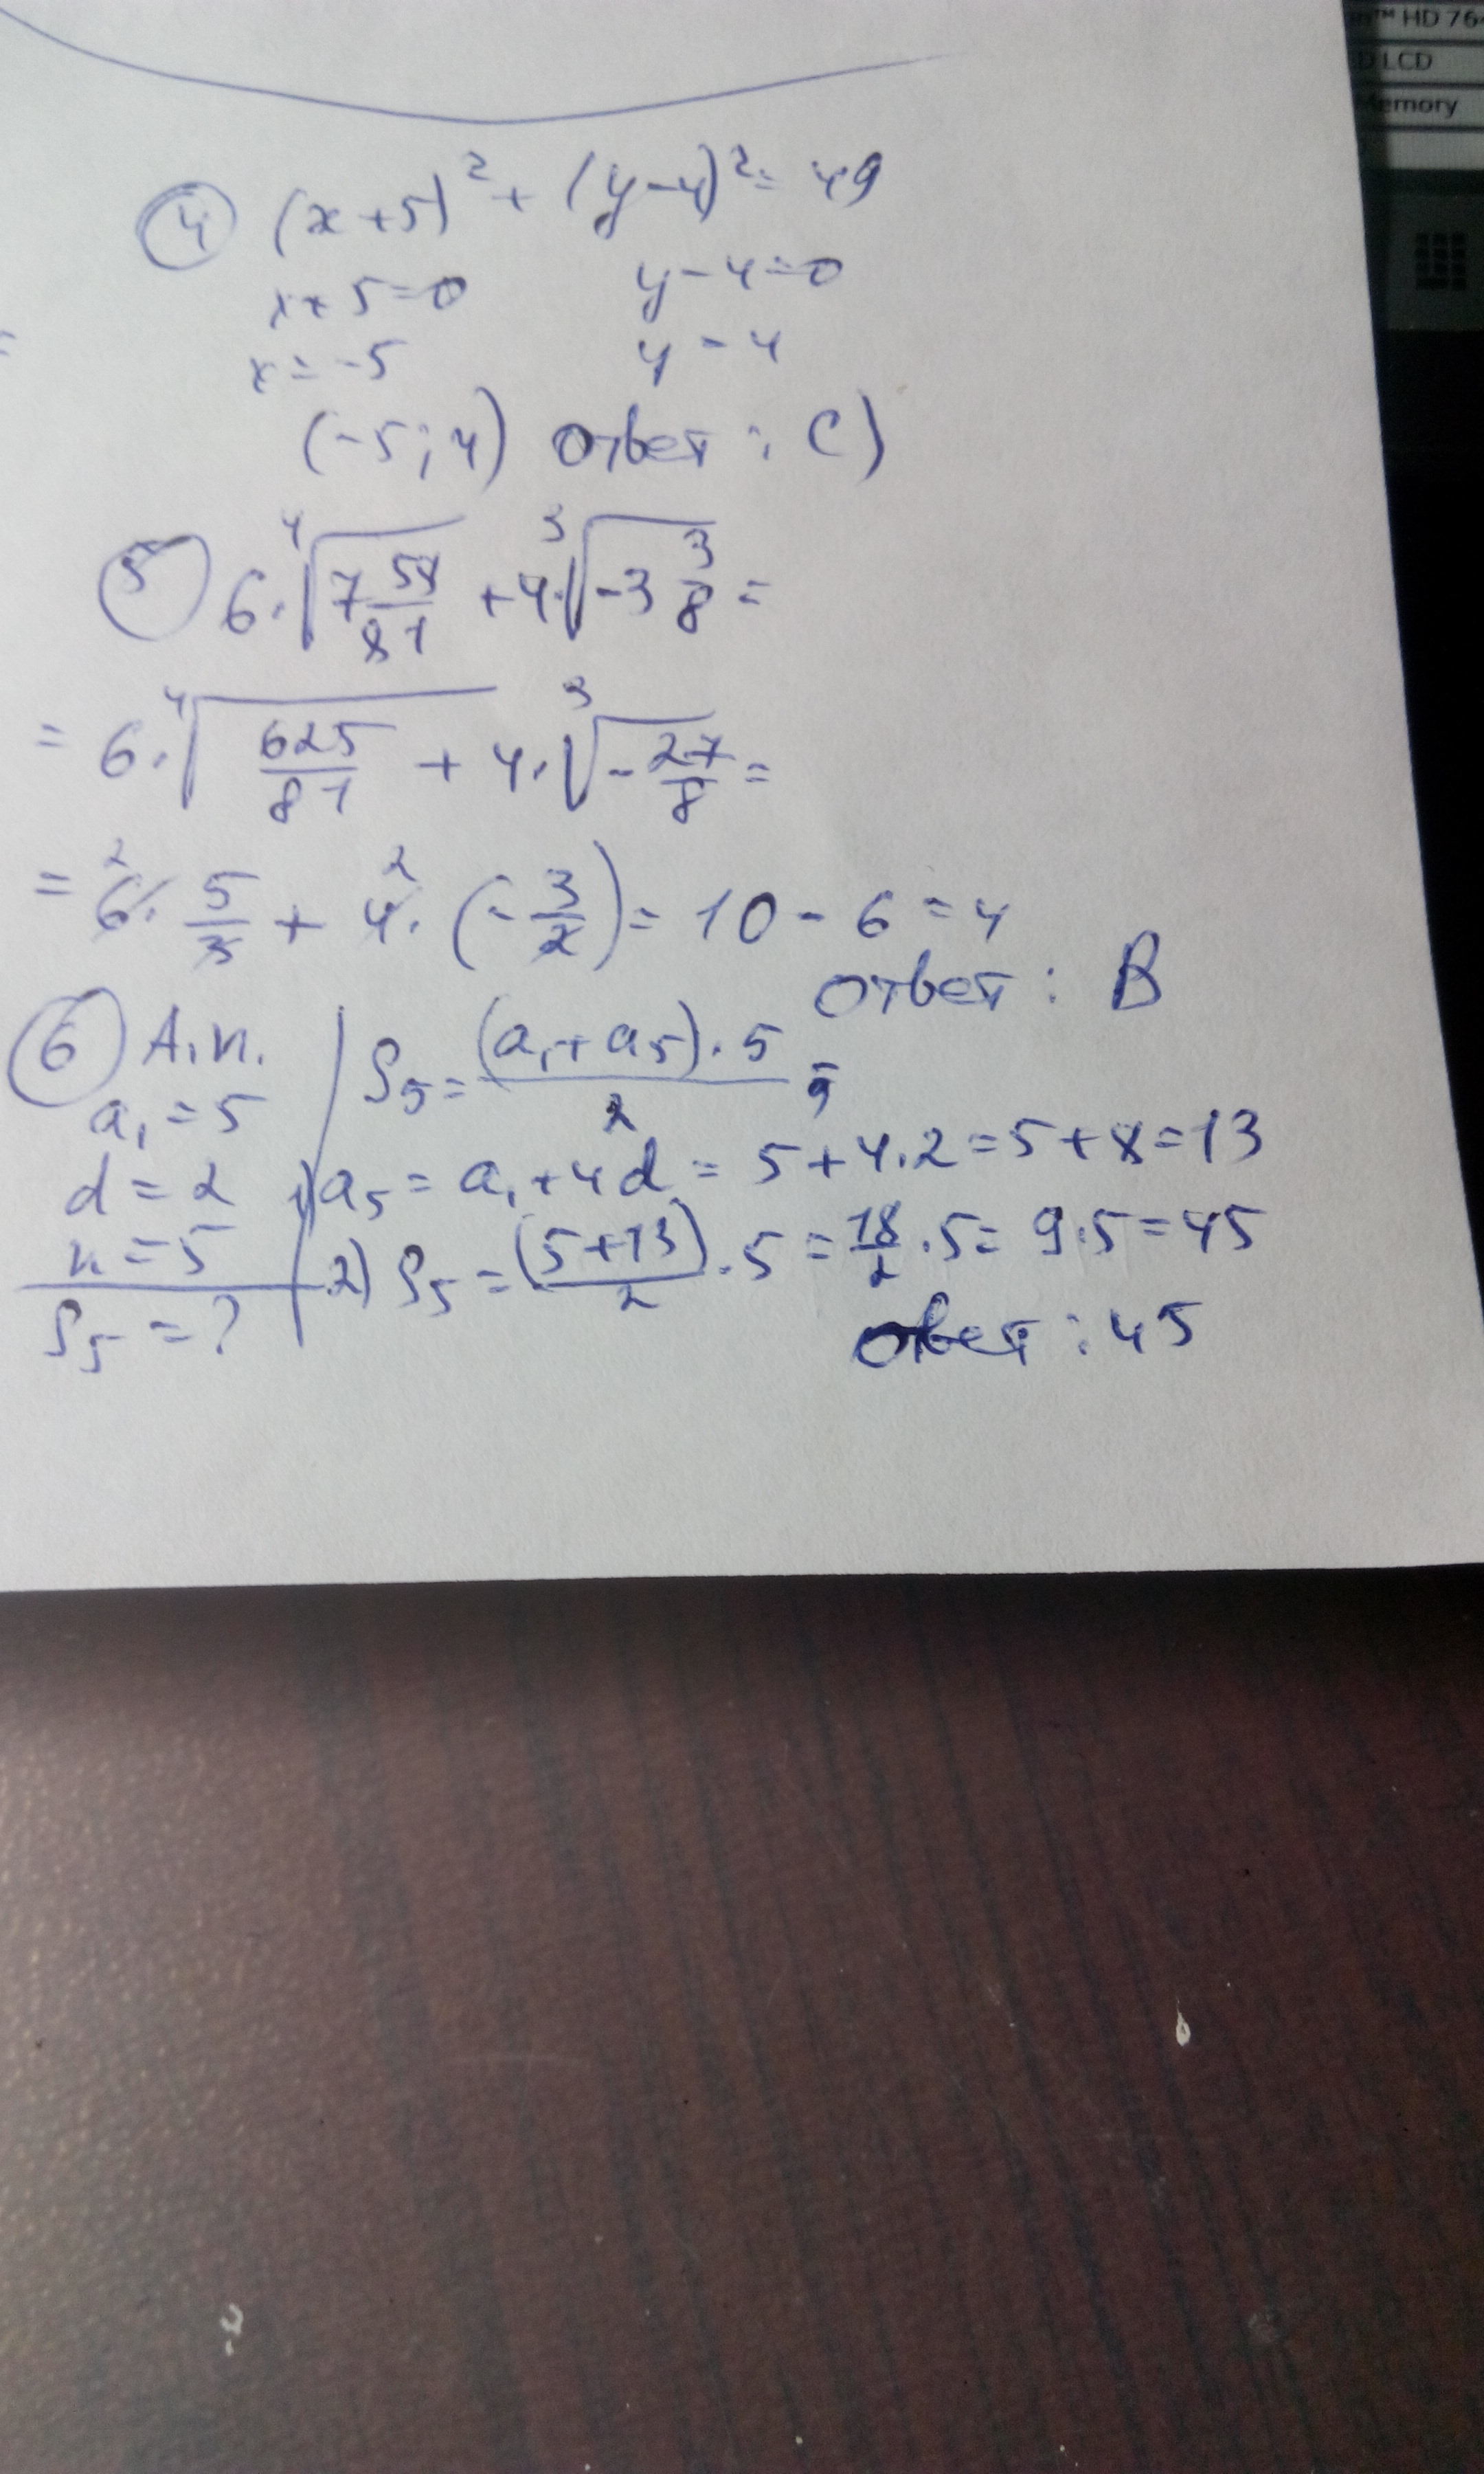 ™ HD 764
LCD
Memory
④ (x+5)² + (y-4)² = 49
x+5=0 y-4=0
x=-5 y=4
(-5; 4) ответ: C)
⑤ 6·⁴√(7 58/81) + 4·³√(-3 3/8) =
= 6·⁴√(625/81) + 4·³√(-27/8) =
= 6·5/3 + 4·(-3/2) = 10 - 6 = 4
2 2
ответ: B
⑥ А.п.
a₁=5
d=2
n=5
S₅=?
S₅ = (a₁+a₅)·5/2 =
1) a₅ = a₁+4d = 5+4·2 = 5+8 = 13
2) S₅ = (5+13)/2 · 5 = 18/2 · 5 = 9·5 = 45
ответ: 45